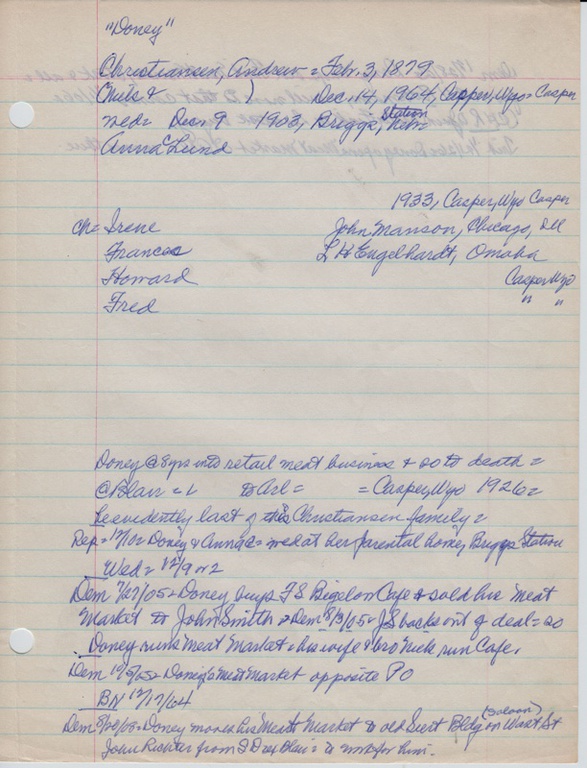 "Doney"
Christiansen, Andrew = Feb. 3, 1879
(Nels & ) Dec. 14, 1964, Casper, Wyo = Casper
wed = Dec 9 1903, Briggs, Station Nebr
Anna C Lund
1933, Casper, Wyo Casper
ch = Irene John Manson, Chicago, Ill
Frances L H Engelhardt, Omaha
Howard Casper Wyo
Fred " "
Doney @ 8 yrs into retail meat business & so to death =
@ Blair = & to Arl = = Casper, Wyo 1926 =
he evidently last of this Christiansen family =
Rep = 12/10 = Doney & Anna C = wed at her parental home, Briggs Station
Wed = 12/9
Dem 7/27/05 = Doney buys F S Bigelow Cafe & sold his Meat
Market to John Smith = Dem 8/3/05 = JS backs out of deal = so
Doney runs Meat Market = his wife & bro Nick run Cafe.
Dem Doney's Meat Market opposite PO
BN 12/17/64
Dem Doney moves his Meat Market to old Bldg (saloon) on Wash St
John Richter from Blair is to work for him.